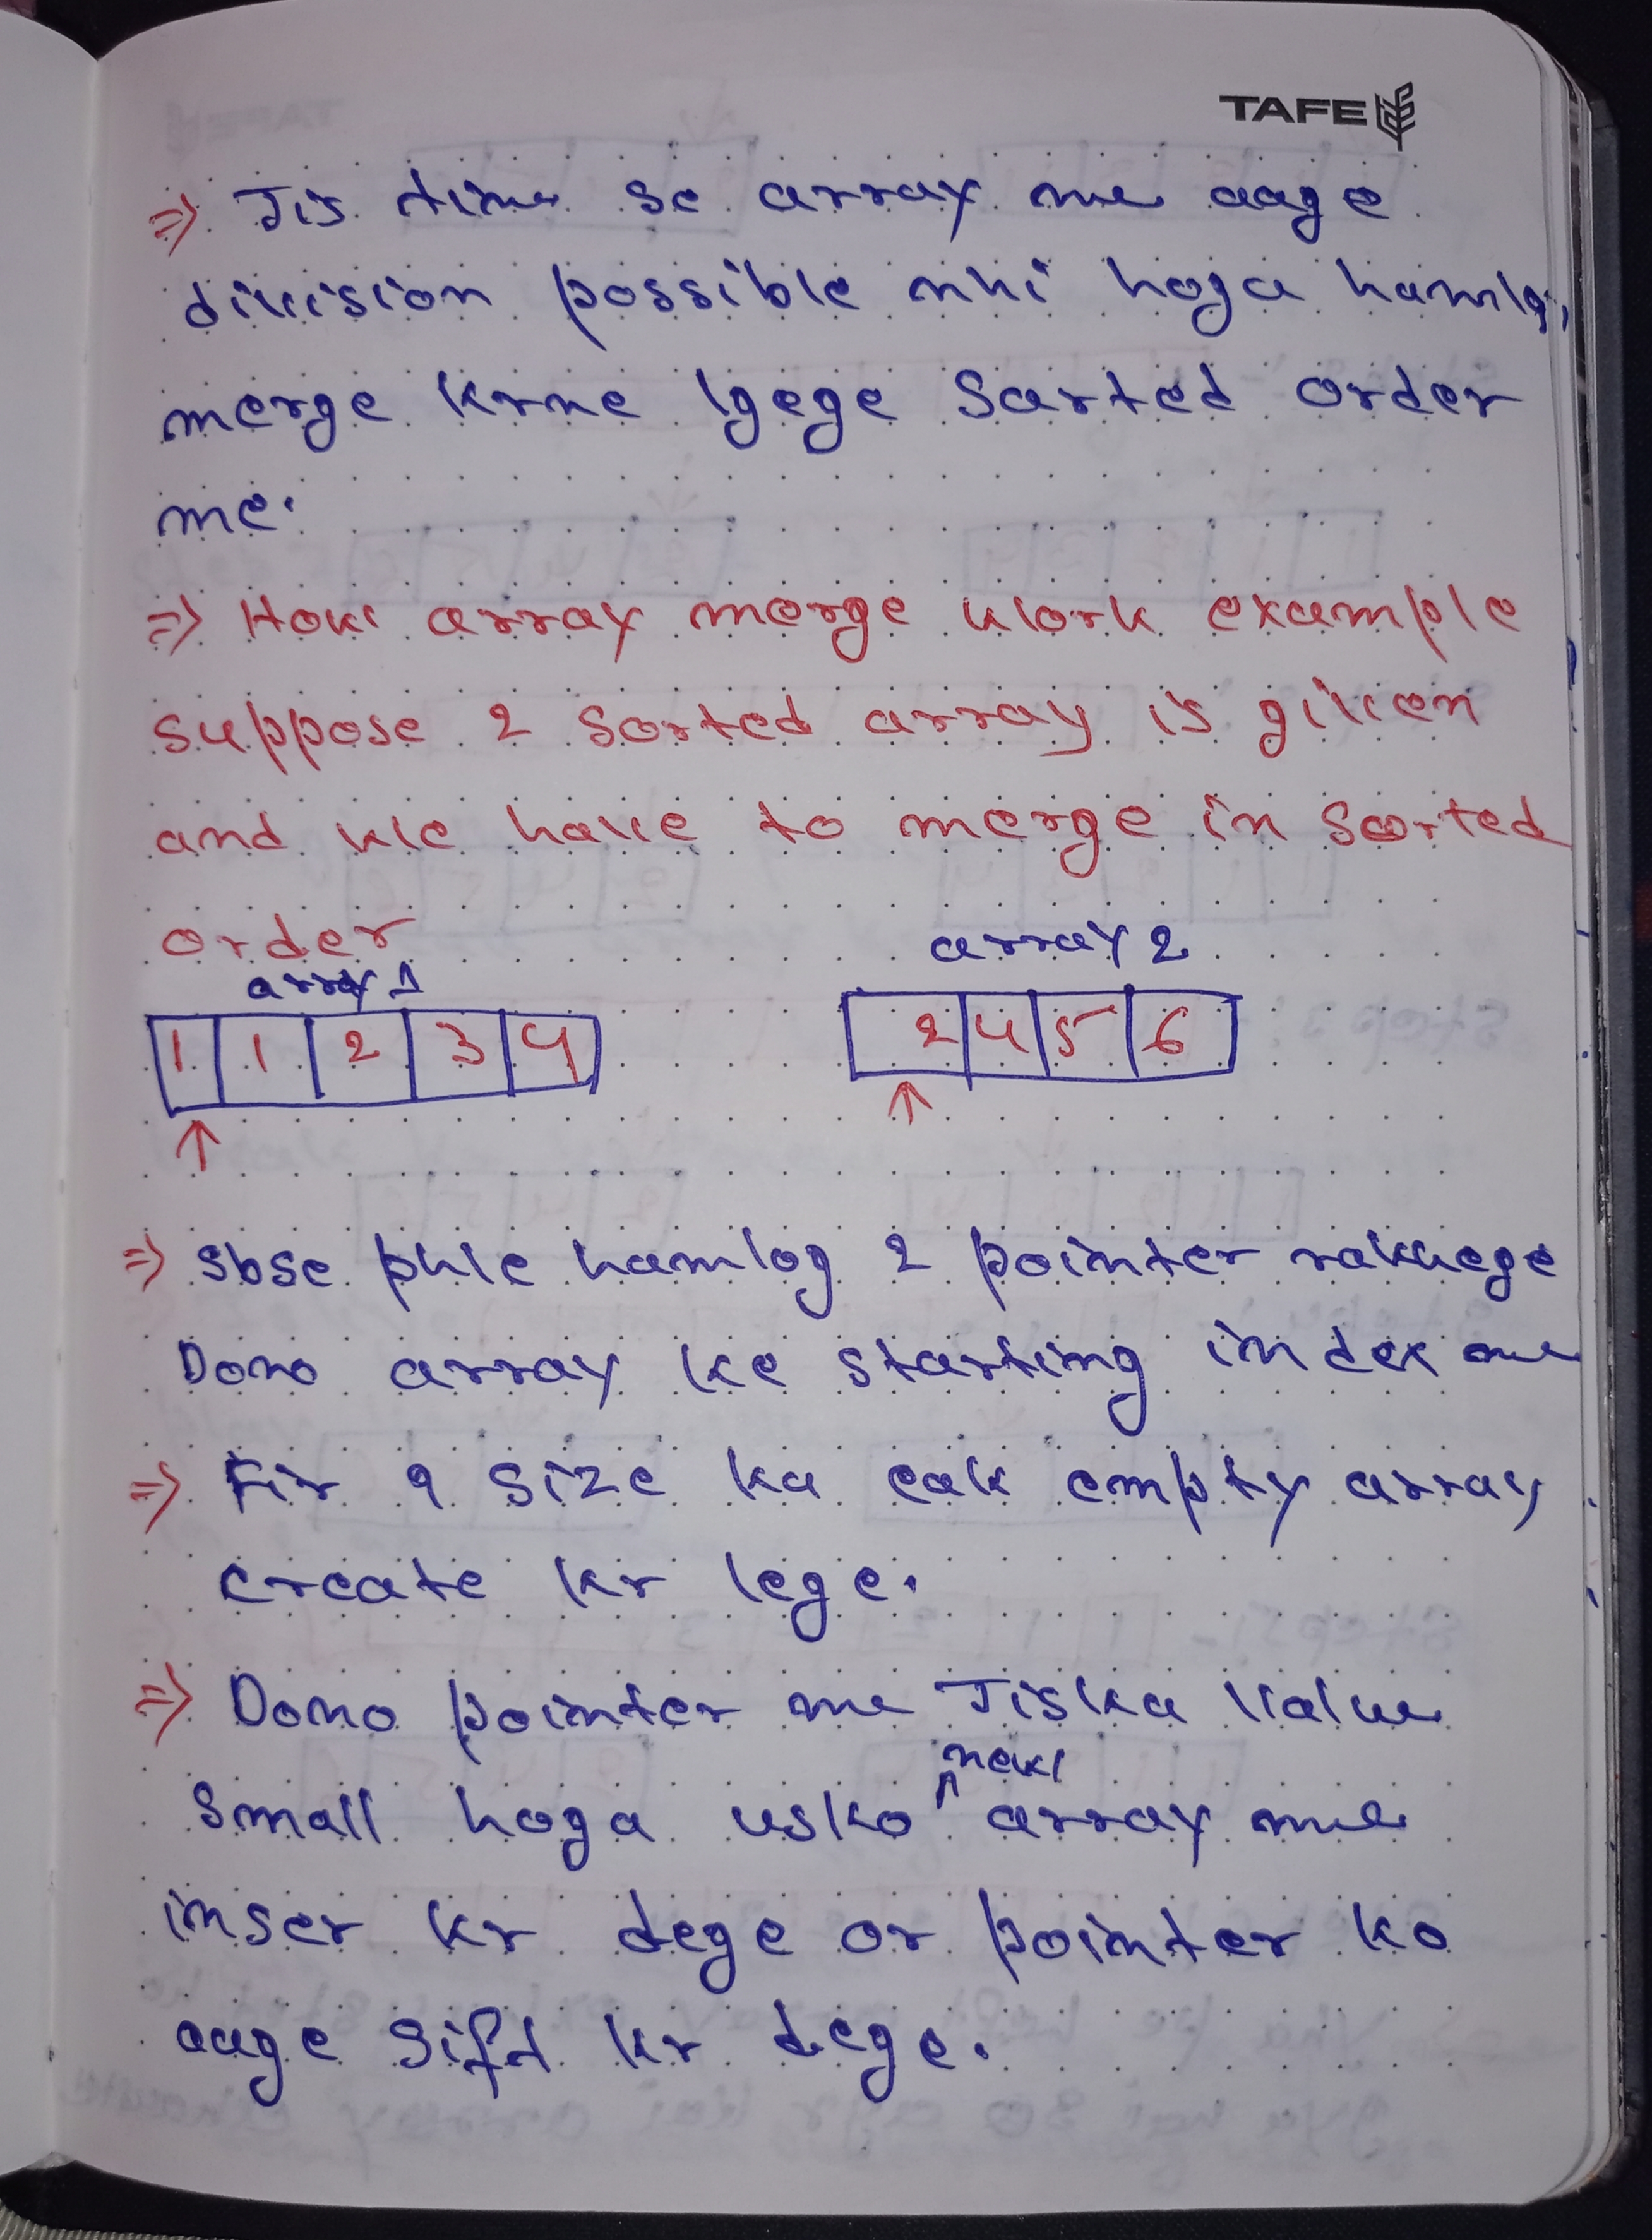 TAFE
=> Jis time se array me aage
division possible nhi hoga hamlog
merge krne lgege Sarted order
me.
=> How array merge work example
suppose 2 sorted array is given
and we have to merge in Sorted
order
array 1 array 2
1 1 2 3 4 2 4 5 6
=> sbse phle hamlog 2 pointer rakhege
Dono array ke starting index me
=> Fir 9 size ka eak empty array
create kr lege.
=> Dono pointer me Jiska value
new
small hoga usko ^ array me
inser kr dege or pointer ko
aage sift kr dege.